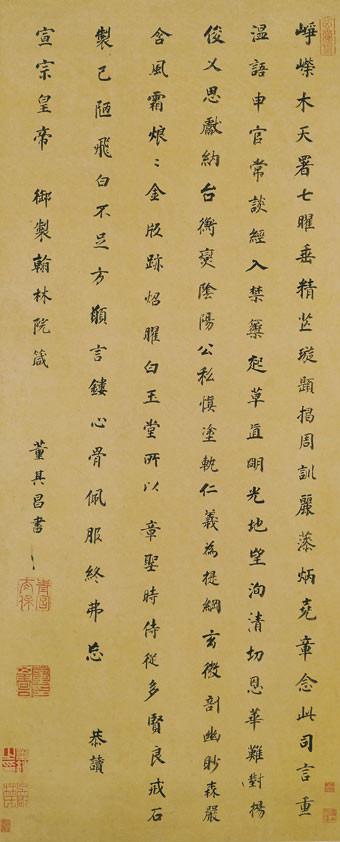 崢嶸木天署七曜垂精芒璇題揭周訓麗藻炳堯章念此司言重
溫語申官常談經入禁籞起草直明光地望洵清切恩華難對揚
俊乂思獻納台衡燮陰陽公私慎塗軌仁義為提綱玄微剖幽眇森嚴
含風霜烺〻金版跡炤曜白玉堂所以章聖時侍從多賢良戒石
製已陋飛白不足方願言鏤心骨佩服終弗忘　恭讀
宣宗皇帝　御製翰林院箴
董其昌書